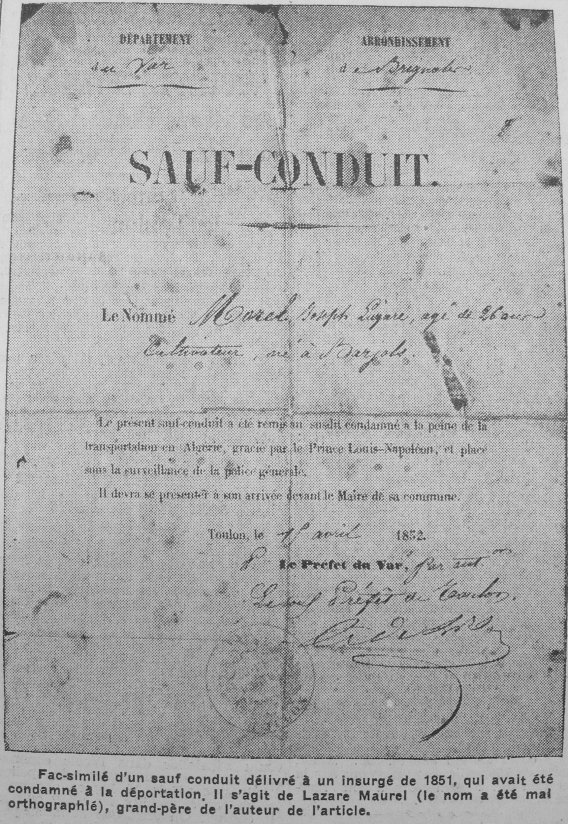 DÉPARTEMENT
du Var
ARRONDISSEMENT
de Brignoles
SAUF-CONDUIT.
Le Nommé Morel, Joseph Lazare, agé de 26 ans
Cultivateur, né à Barjols.
Le présent sauf-conduit a été remis au susdit condamné à la peine de la
transportation en Algérie, gracié par le Prince Louis-Napoléon, et placé
sous la surveillance de la police générale.
Il devra se présenter à son arrivée devant le Maire de sa commune.
Toulon, le 15 avril 1852.
P Le Préfet du Var, par aut on
Le Préfet de Toulon.
Fac-similé d'un sauf conduit délivré à un insurgé de 1851, qui avait été
condamné à la déportation. Il s'agit de Lazare Maurel (le nom a été mal
orthographié), grand-père de l'auteur de l'article.